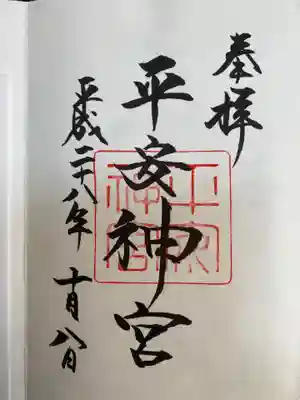 奉拝
平安神宮
平安
神宮
平成二十八年 十月八日